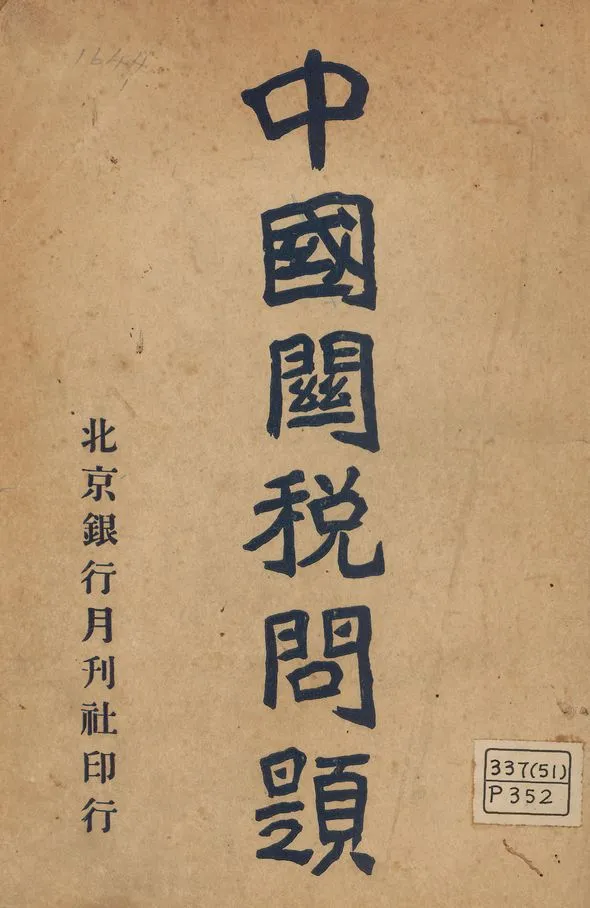 1644
中國關税問題
北京銀行月刊社印行
337(51)
P352